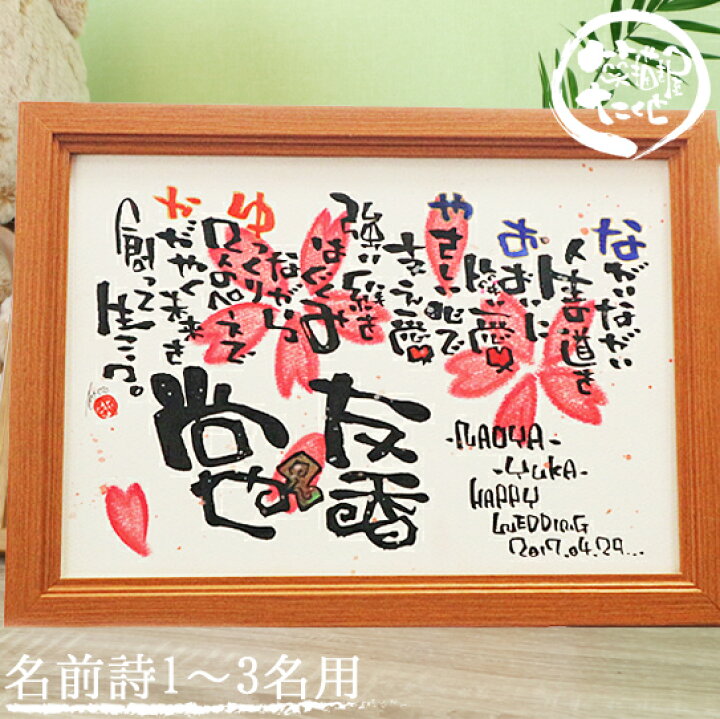 ながいながい
人生の道を
おおいに
い愛
やさしい心で
支え愛
強い絆を
はぐくみ
ながら
ゆっくり
2人のペースで
かがやく未来を
創って生こう。
友香
尚也
-NAOYA-
-YUKA-
HAPPY
WEDDING
2017.04.29...
名前詩1〜3名用